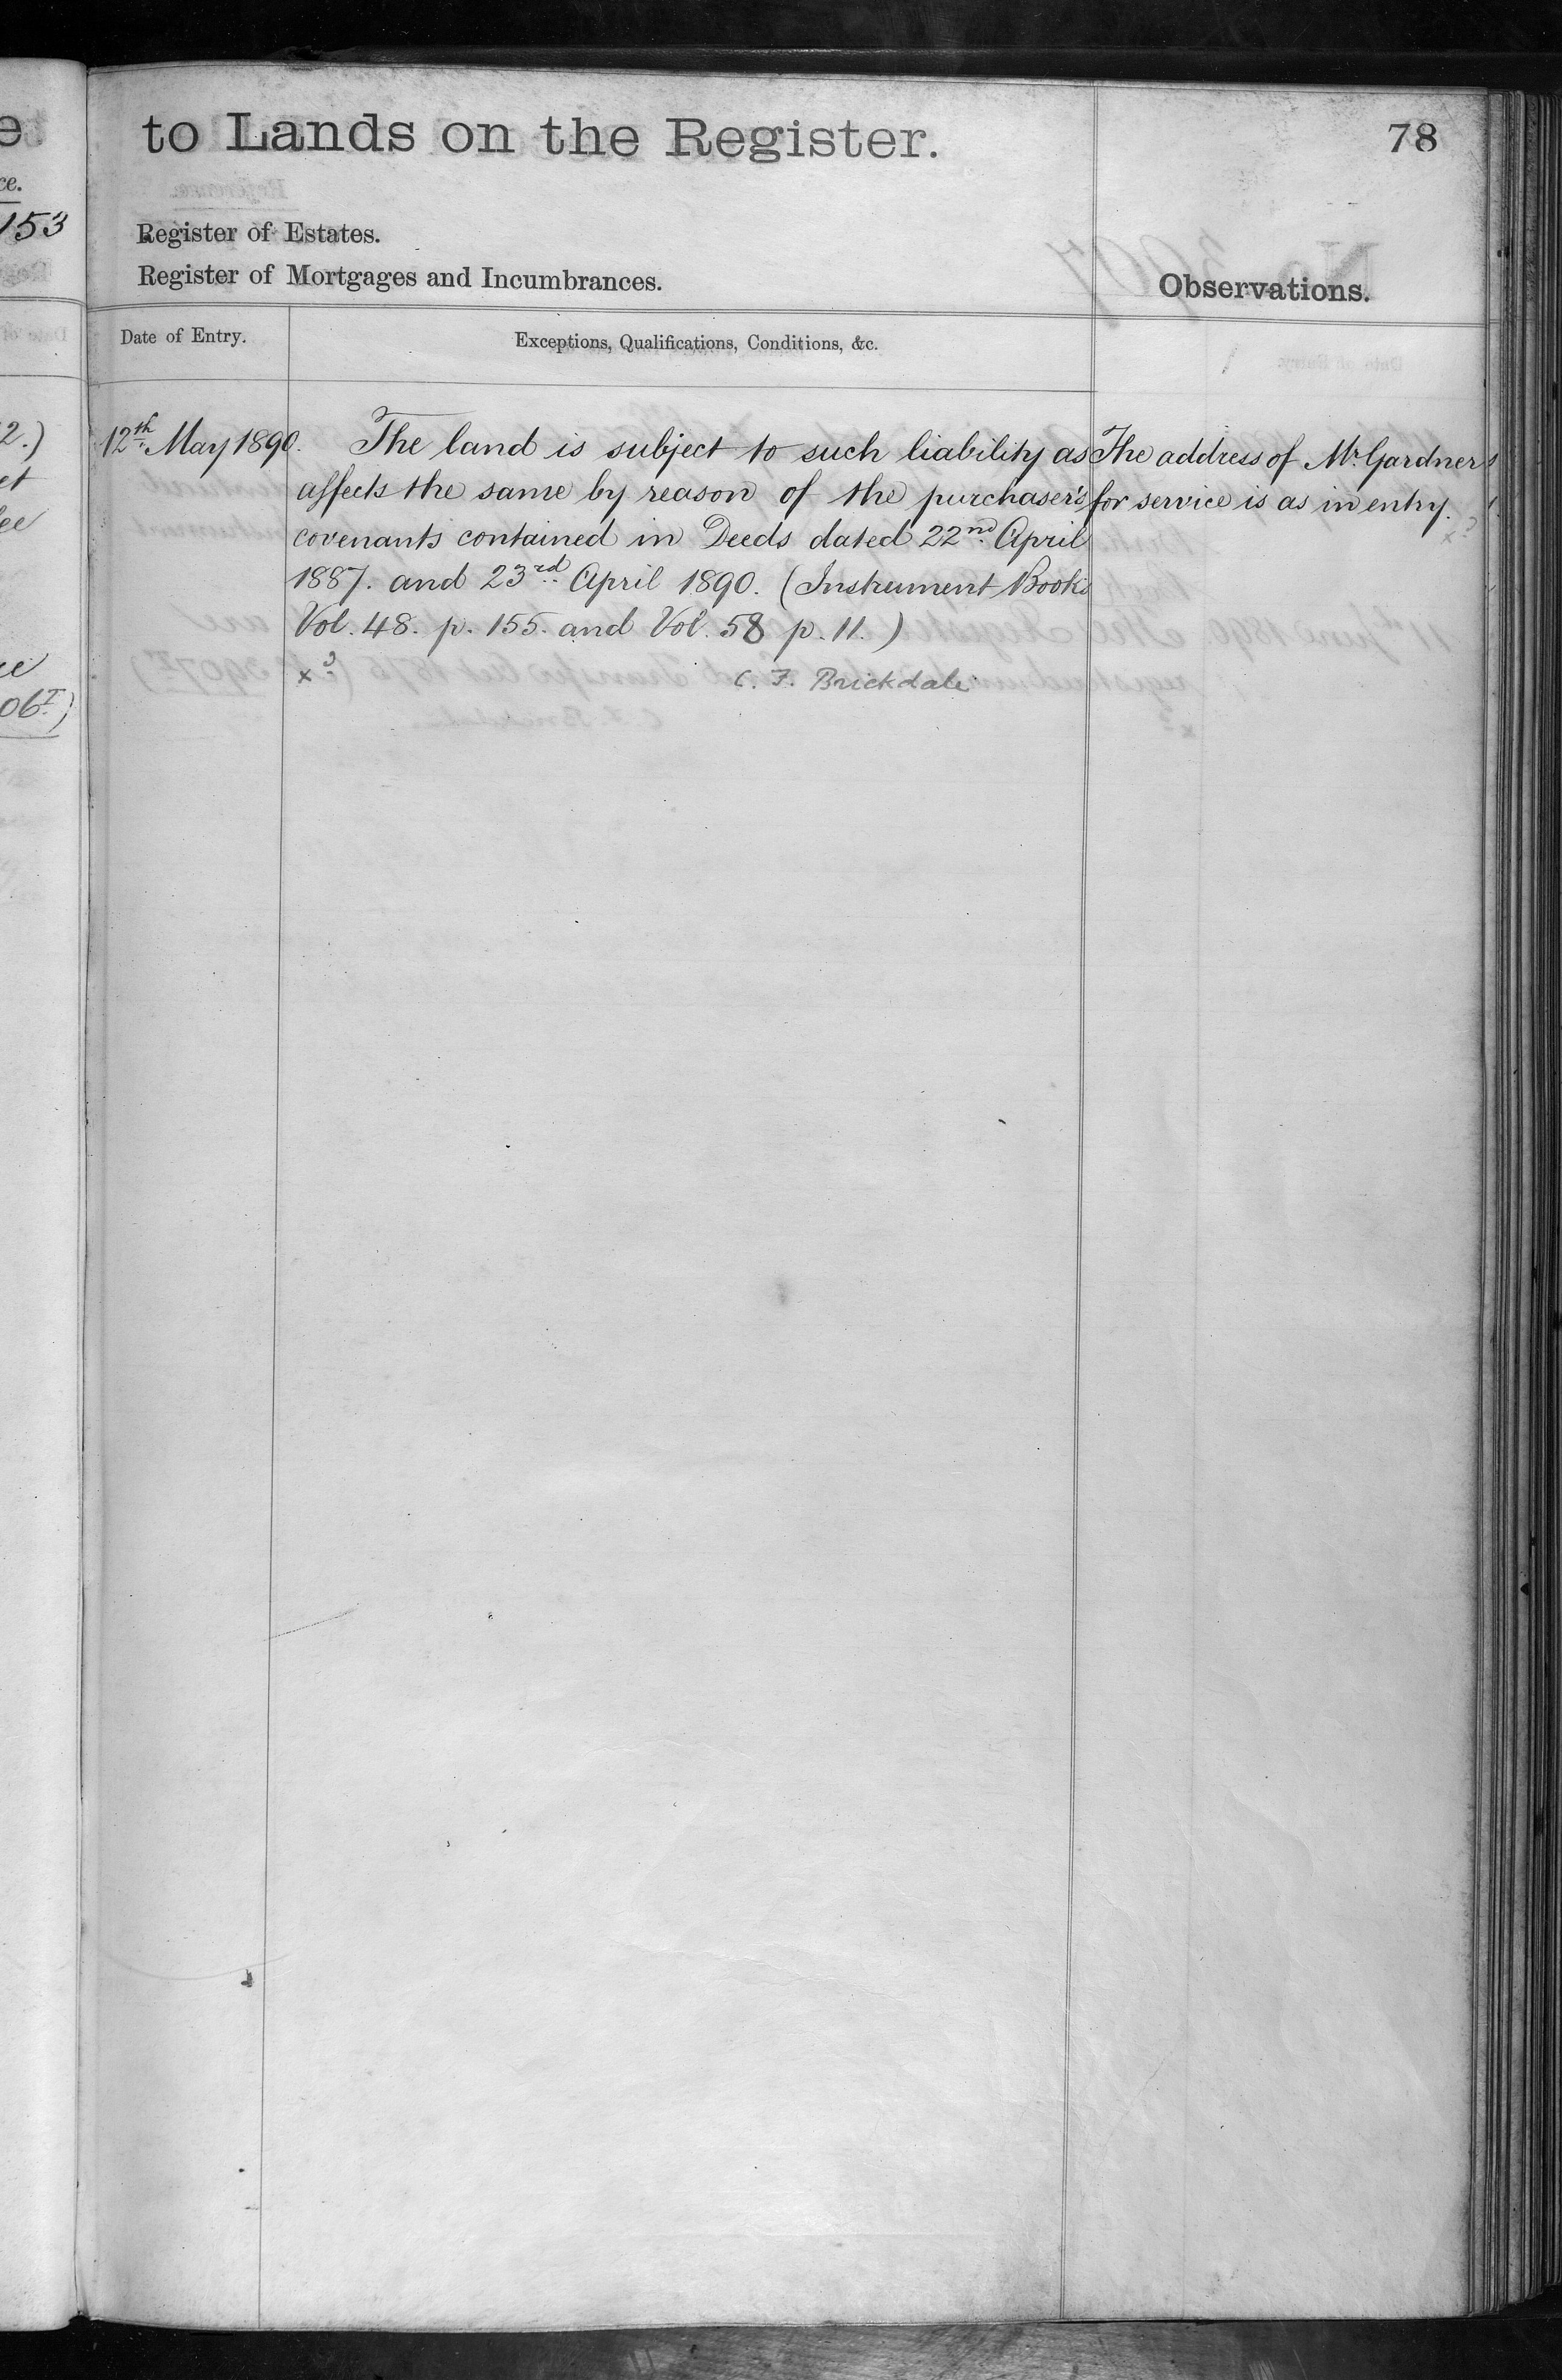 to Lands on the Register.
78
153
Register of Estates.
Register of Mortgages and Incumbrances.
Observations.
Date of Entry.
Exceptions, Qualifications, Conditions, &c.
12th May 1890.
The land is subject to such liability as
affects the same by reason of the purchaser's
covenants contained in Deeds dated 22nd April
1887. and 23rd April 1890. (Instrument Books
Vol. 48. p. 155. and Vol. 58 p. 11.)
C. F. Brickdale
The address of Mr. Gardner
for service is as in entry.